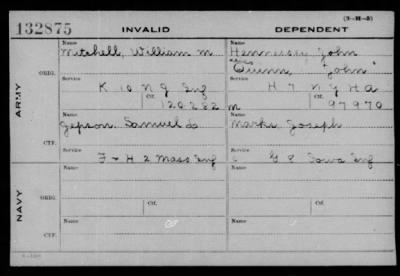 (3-H-5)
132875 INVALID DEPENDENT
Name Name
Mitchell, William M Hennessey, John
"Quinn, John"
ARMY
ORIG. Service Service
K 10 N Y Inf H 7 N Y H A
Ctf. Ctf.
120282 m 97970
Name Name
Jepson Samuel S Marks Joseph
CTF. Service Service
F + H 2 Mass Inf G 8 Iowa Inf
NAVY
Name Name
ORIG. Ctf. Ctf.
Name Name
CTF.